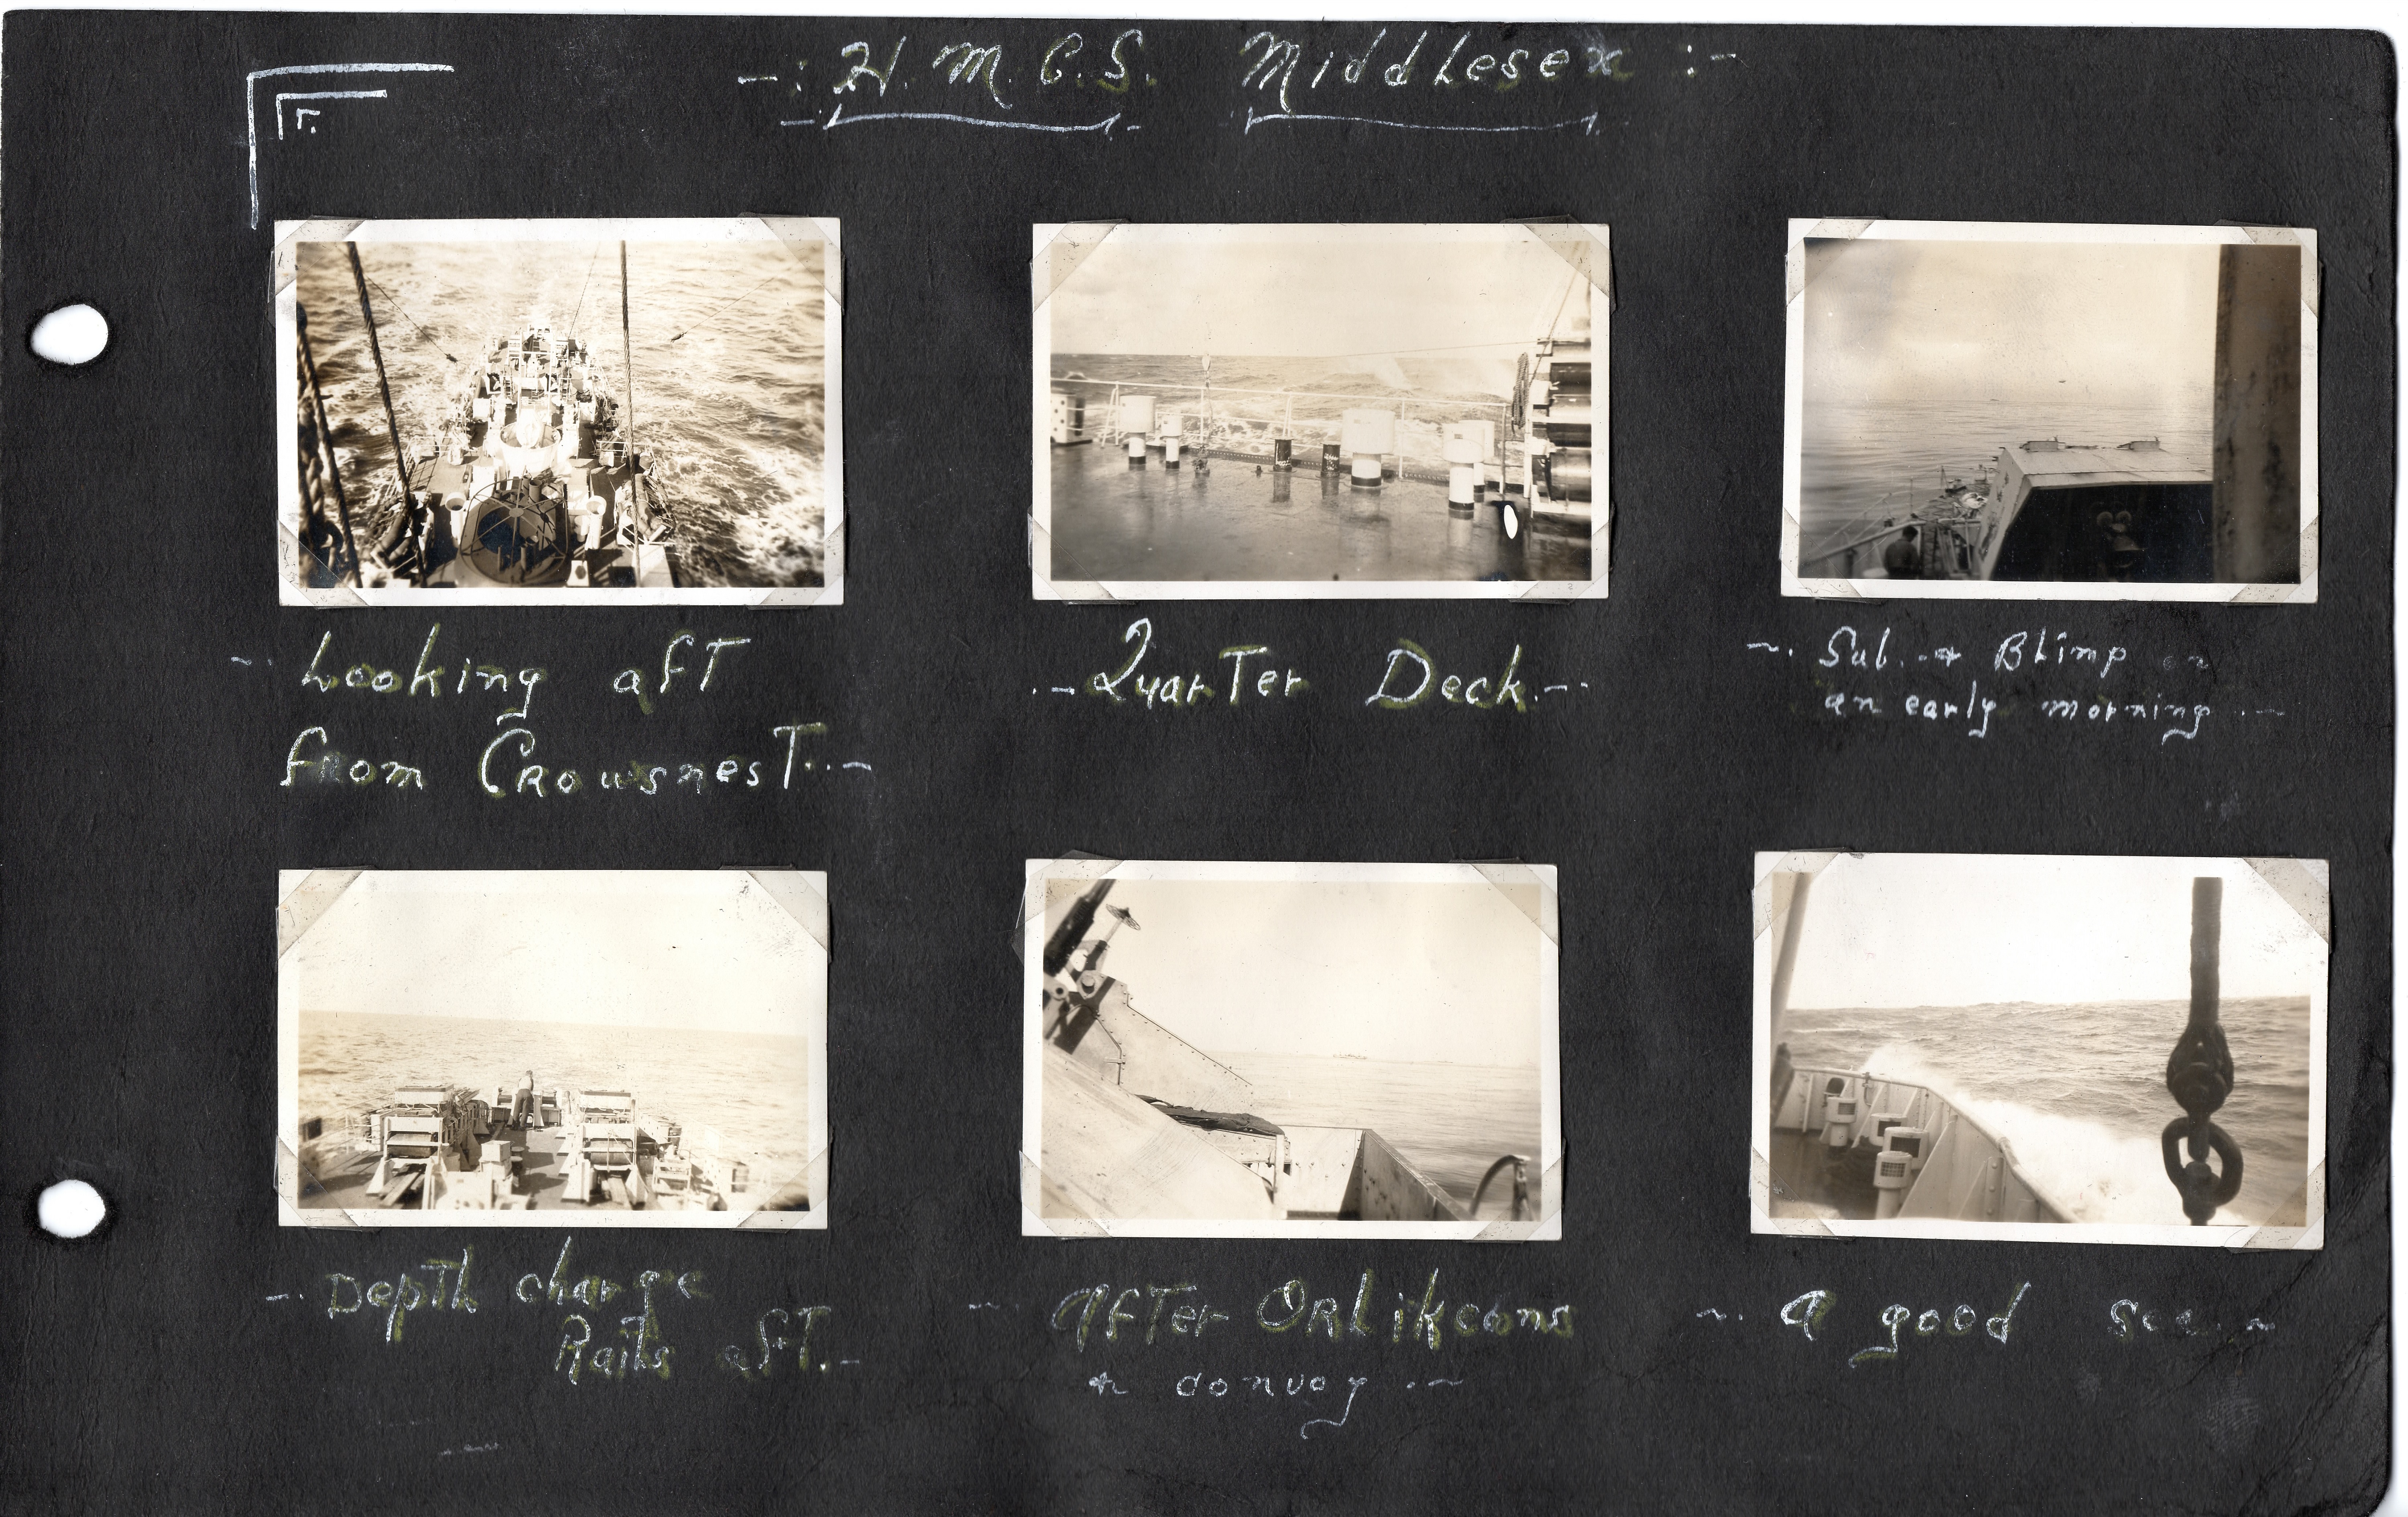 -: H.M.C.S. Middlesex :-
~. Looking aft
from Crowsnest..~
.-. Quarter Deck.-.
~. Sub. & Blimp on
an early morning .~
-. Depth charge
Rails aft.-
~. After Orlikeons
& convoy .~
~. A good sea. ~